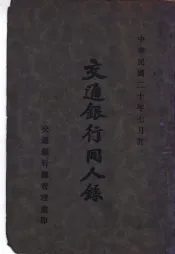 中華民國二十年七月訂
交通銀行同人錄
交通銀行總管理處印